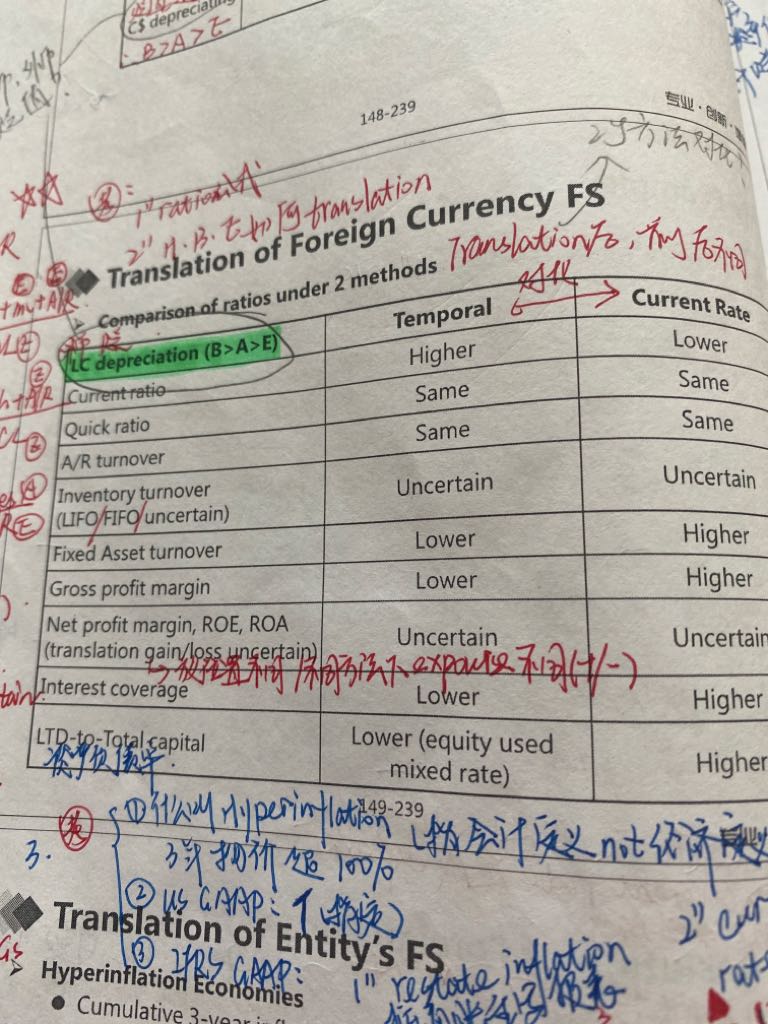 C$ depreciating
B>A>E
148-239
专业·创新·
2个方法对比
1" ratio
2" A. B. E 如何 translation
Translation of Foreign Currency FS
Comparison of ratios under 2 methods
Translation 后,
对比
Temporal
Current Rate
LC depreciation (B>A>E)
Current ratio
Higher
Lower
Quick ratio
Same
Same
A/R turnover
Same
Same
Inventory turnover
(LIFO/FIFO/uncertain)
Uncertain
Uncertain
Fixed Asset turnover
Lower
Higher
Gross profit margin
Lower
Higher
Net profit margin, ROE, ROA
(translation gain/loss uncertain)
Uncertain
Uncertain
不同方法下 exposure 不同(+/-)
Interest coverage
Lower
Higher
LTD-to-Total capital
Lower (equity used
mixed rate)
Higher
149-239
① 什么叫 Hyperinflation
会计定义 not 经济定义
3.
3年物价超 100%
② US GAAP:
③ IFRS GAAP:
1" restate inflation
2" cur
rat
Translation of Entity's FS
Hyperinflation Economies
Cumulative 3-year